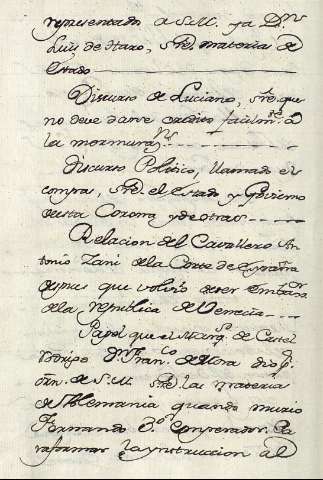 representado a S.M. ya Dn.
Luis de Haro, sre. materia de
Estado
Discurso de Luciano, sre. que
no deve darse credito facilmte. a
la mormuran.
Discurso Politico, llamado el
compas, sre. el Estado y Govierno
de esta Corona y de otras
Relacion del Cavallero An
tonio Zani de la Corte de Españа
despues que volvió de ser embaxdor
de la republica de Venecia
Papel que el Marqs. de Castel
Rodrigo Dn. Franco. de Mora dio pr.
orn. de S.M. sre. las materias
de Alemania quando murio
Fernando 3o. emperador. Pa
raformar la ynstruccion al